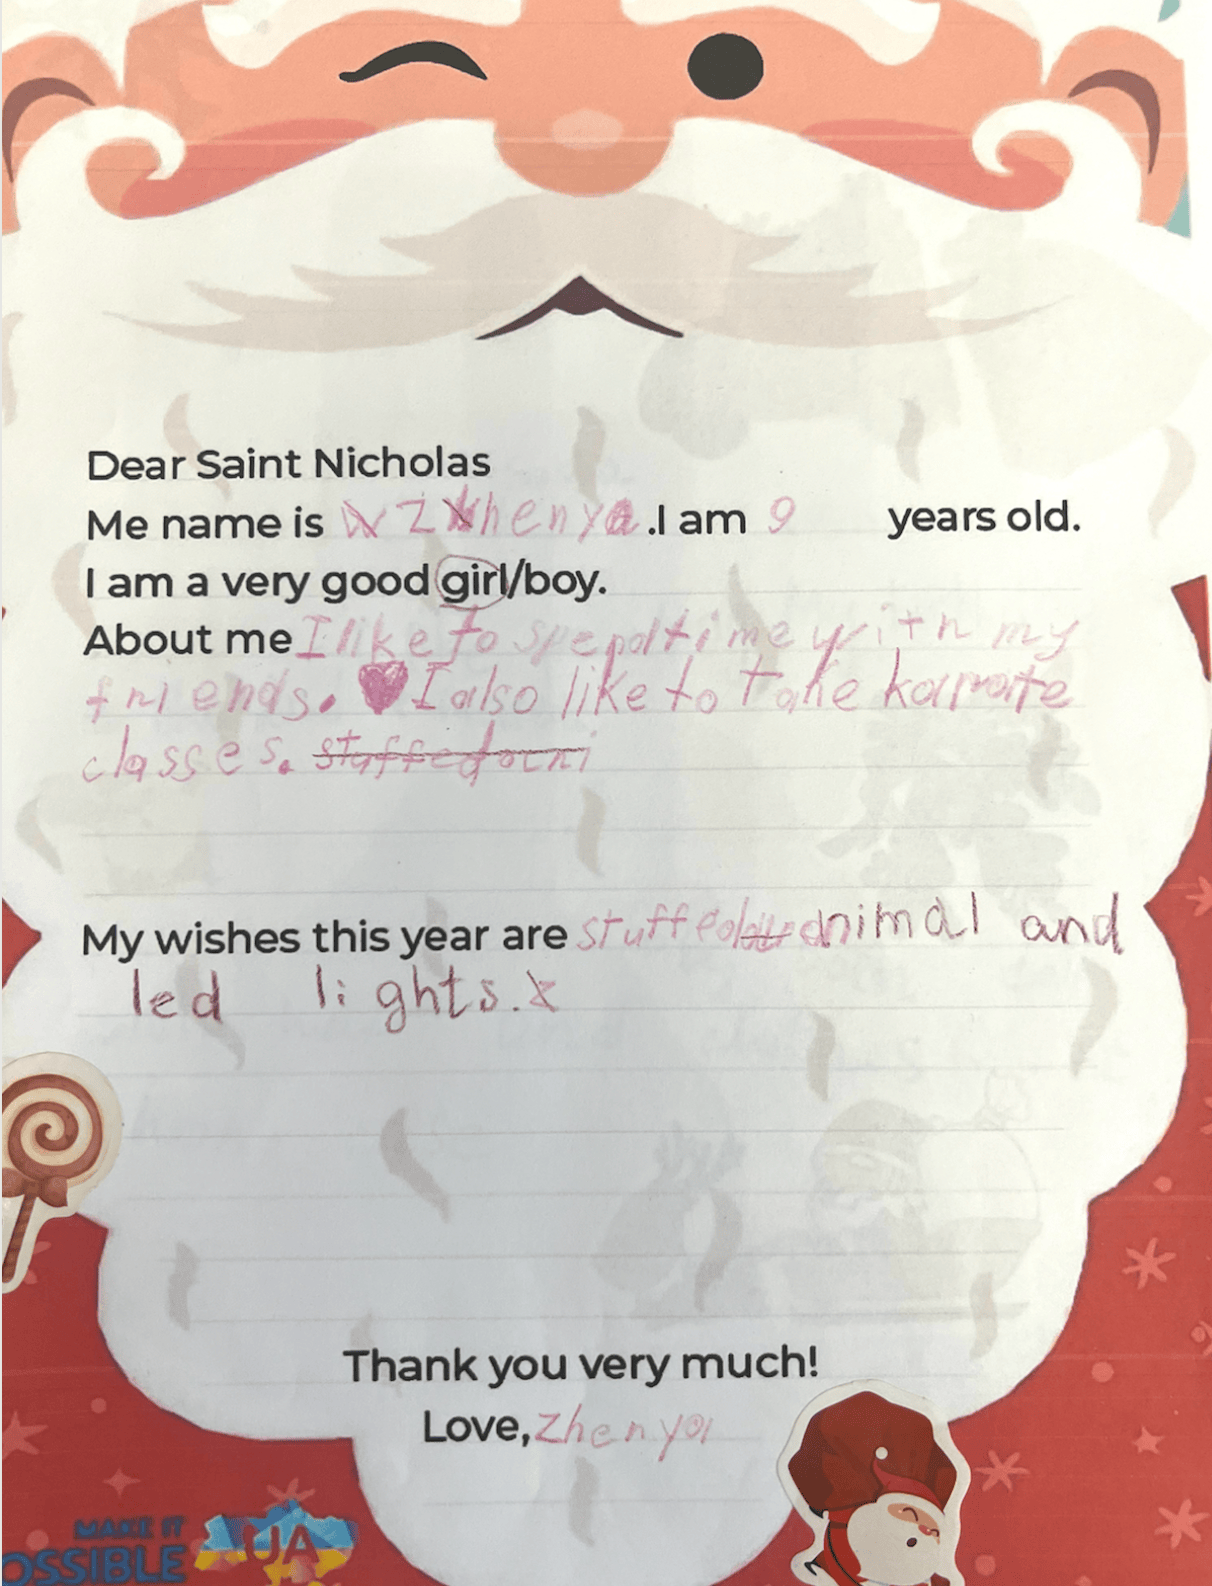 Dear Saint Nicholas
Me name is Zhenya .I am 9 years old.
I am a very good girl/boy.
About me I like to spend time with my
friends. I also like to take karate
classes. stuffed
My wishes this year are stuffed animal and
led lights.
Thank you very much!
Love, Zhenya
MAKE IT
OSSIBLE UA